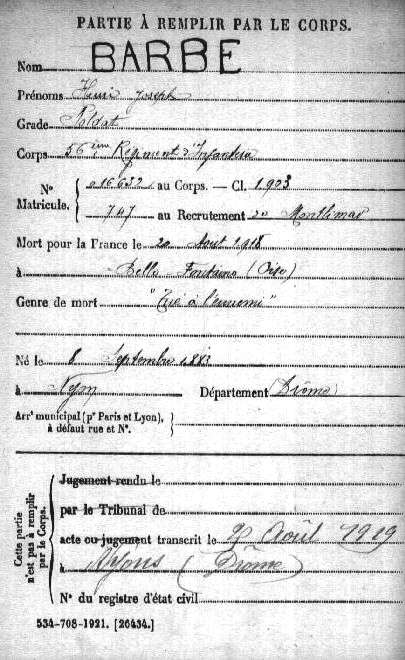 PARTIE À REMPLIR PAR LE CORPS.
Nom BARBE
Prénoms Henri Joseph
Grade Soldat
Corps 56ème Régiment d'Infanterie
N° Matricule. 016632 au Corps. — Cl. 1903
747 au Recrutement Montlimar
Mort pour la France le 20 Août 1918
à Belle Fontaine (Oise)
Genre de mort "Tué à l'ennemi"
Né le 8 Septembre 1883
à Nyon Département Drôme
Arrt municipal (pr Paris et Lyon),
à défaut rue et N°.
Cette partie n'est pas à remplir par le Corps.
Jugement rendu le
par le Tribunal de
acte ou jugement transcrit le Août 1919
à Nyons (Drôme)
N° du registre d'état civil
534-708-1921. [26434.]